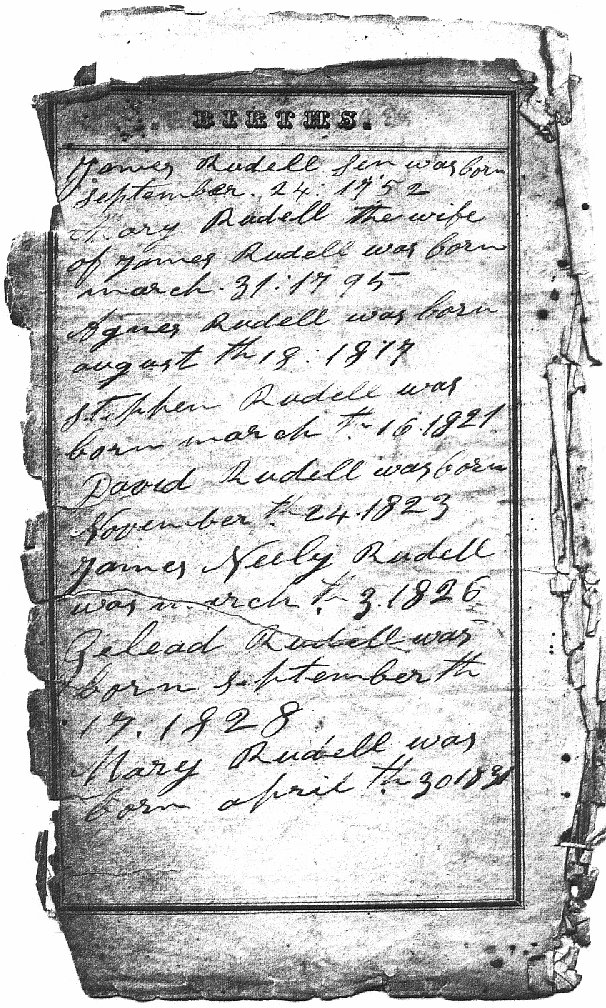 BIRTHS.
James Rudell Sen was born
september. 24: 1752
Mary Rudell the wife
of James Rudell was born
march. 31: 1795
Agnes Rudell was born
august th 18: 1817
stephen Rudell was
born march th 16. 1821
David Rudell was born
November th 24. 1823
James Neely Rudell
was march th 3. 1826
Gelead Rudell was
born september th
17. 1828
Mary Rudell was
born april th 30 1831